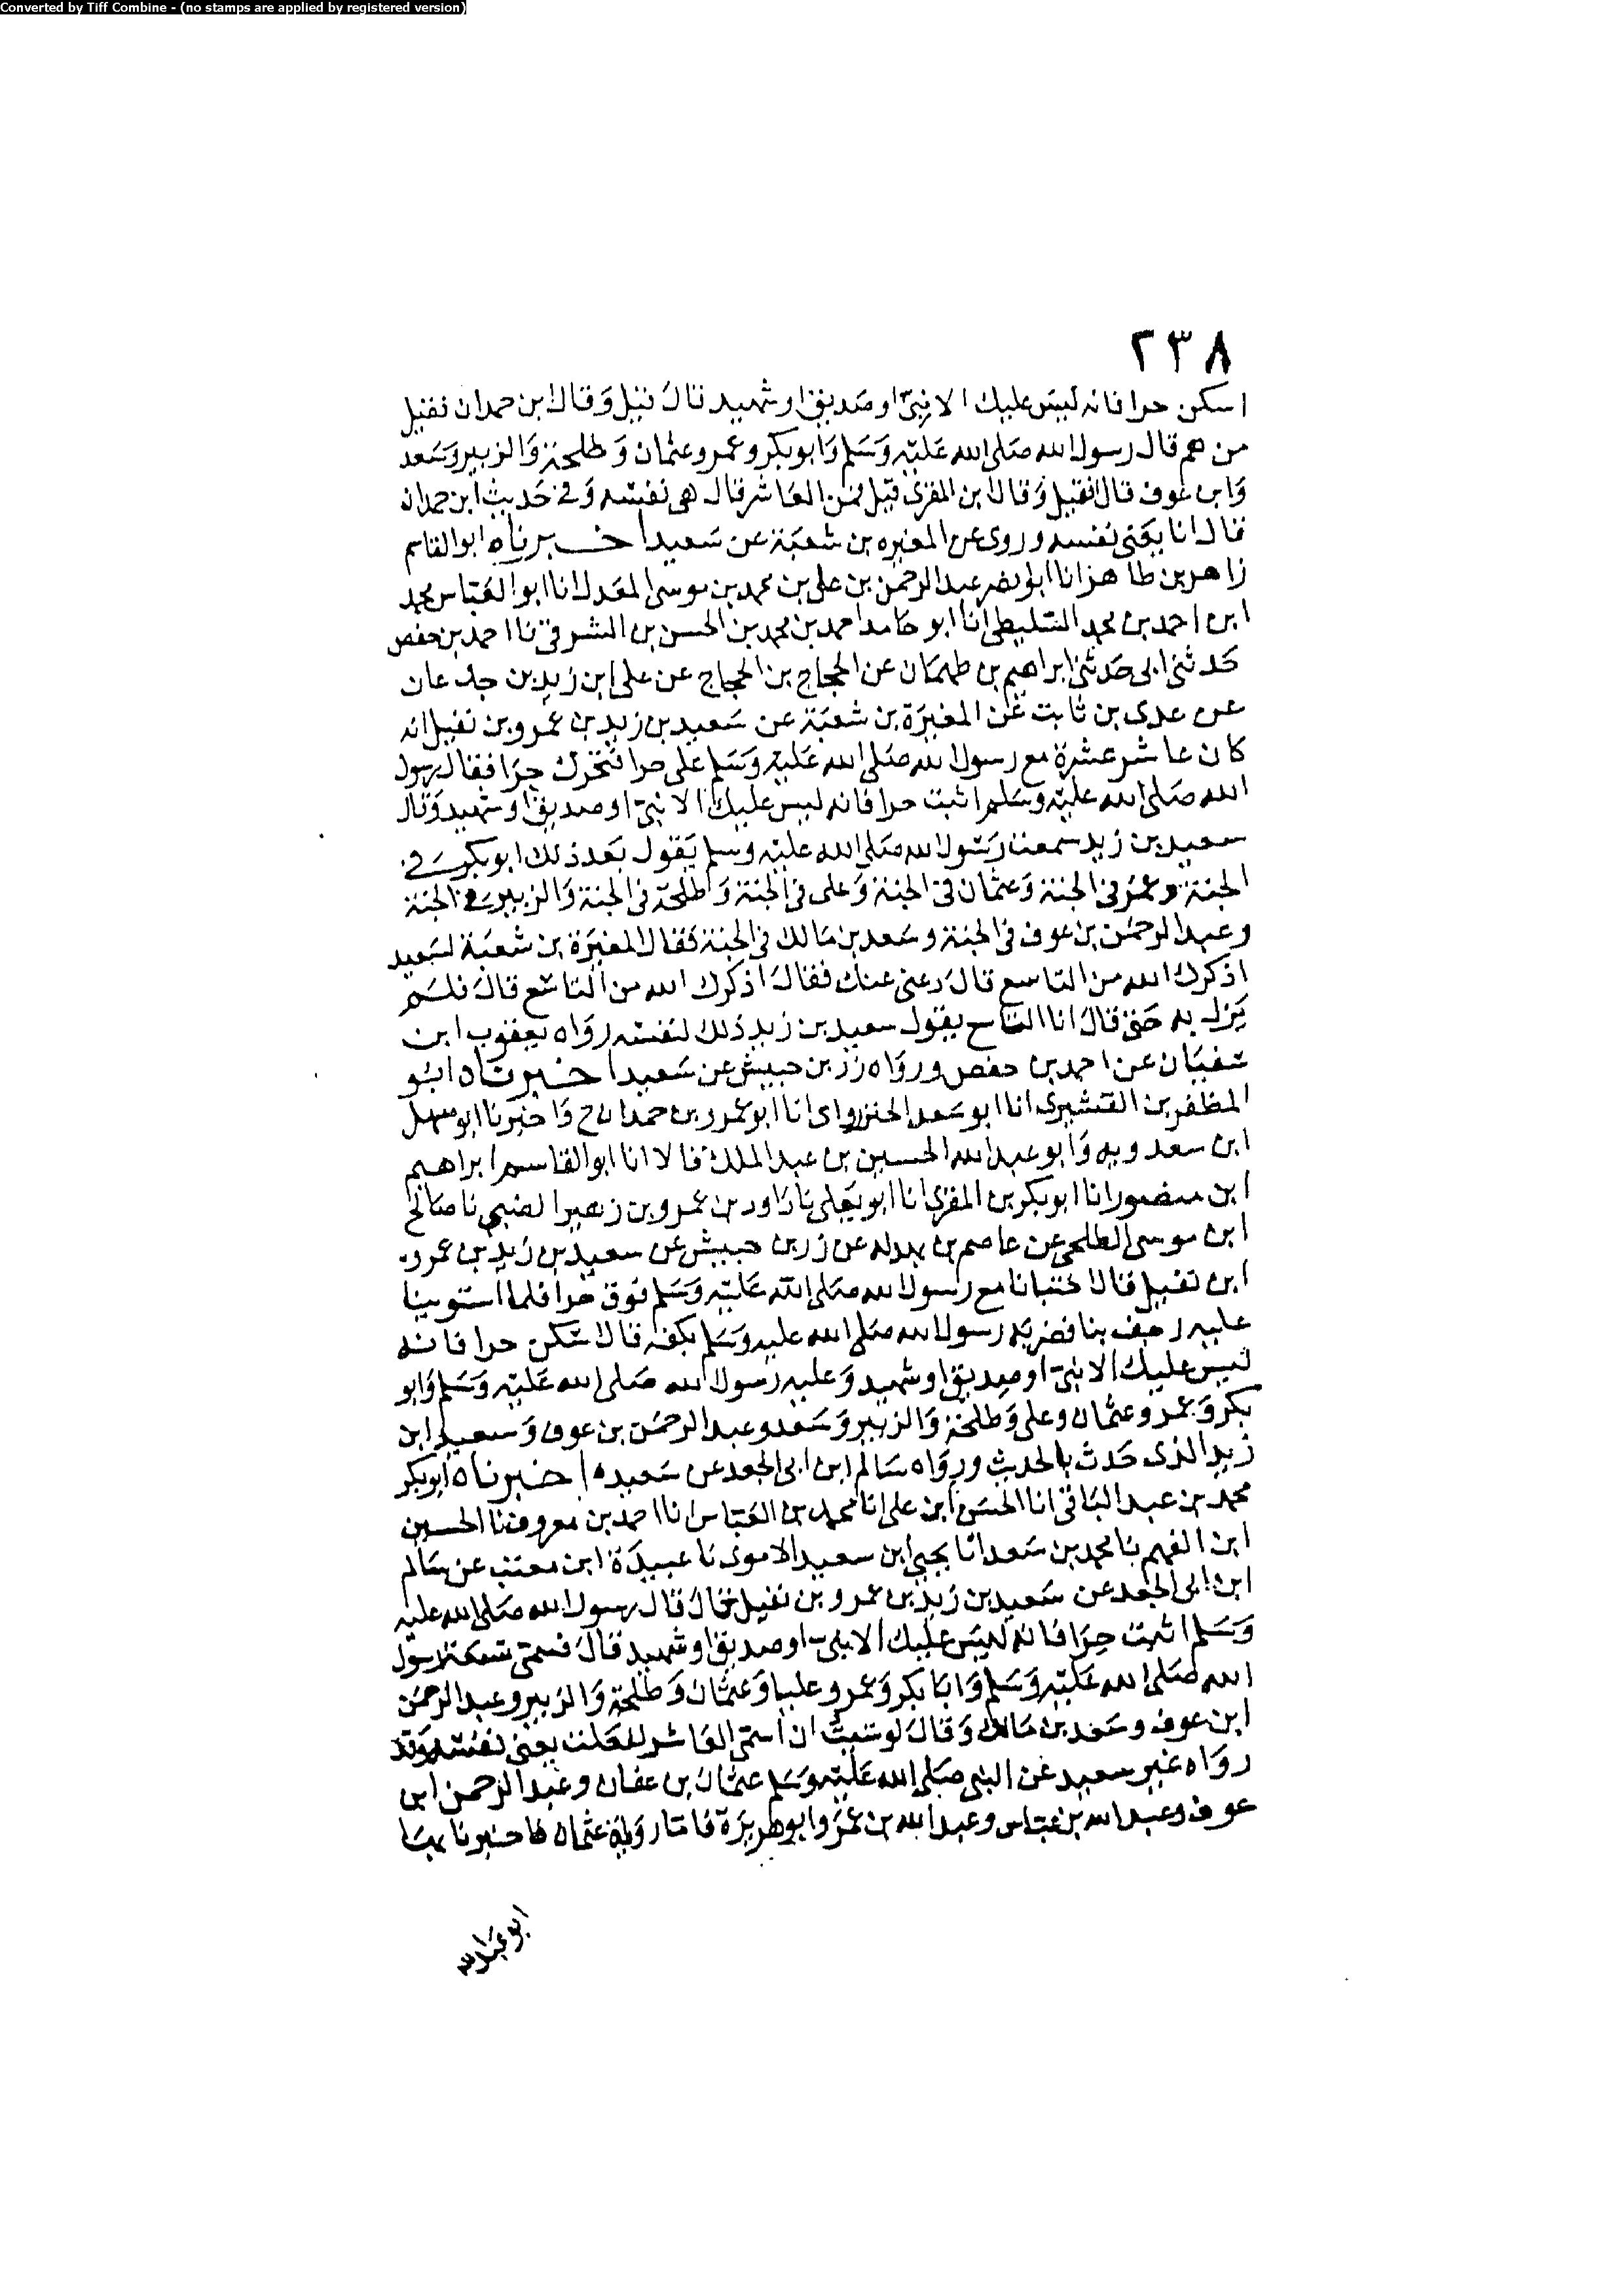 Converted by Tiff Combine - (no stamps are applied by registered version)
٢٣٨
اسكن حرا فانه ليس عليك الا نبيّ او صديق او شهيد قال قيل وقال ابن حمدان فقيل
من هم قال رسول الله صلى الله عليه وسلم وابو بكر وعمر وعثمان وطلحة والزبير وسعد
وابن عوف قال فقيل وقال ابن المقرئ قيل فمن العاشر قال هى نفسه وفى حديث ابن حمدان
قال انا يعنى نفسه وروى عن المغيره بن شعبة عن سعيد اخبرناه ابو القاسم
زاهر بن طاهر انا ابو نصر عبد الرحمن بن على بن محمد بن موسى المعدل انا ابو العباس محمد
ابن احمد بن محمد السليطى انا ابو حامد احمد بن محمد بن الحسن بن الشرقى نا احمد بن حفص
حدثنى ابى حدثنى ابراهيم بن طهمان عن الحجاج بن الحجاج عن على ابن زيد بن جدعان
عن عدى بن ثابت عن المغيرة بن شعبة عن سعيد بن زيد بن عمرو بن نفيل انه
كان عاشر عشرة مع رسول الله صلى الله عليه وسلم على حرا فتحرك حرا فقال رسول
الله صلى الله عليه وسلم اثبت حرا فانه ليس عليك الا نبيّ او صديق او شهيد وقال
سعيد بن زيد سمعت رسول الله صلى الله عليه وسلم يقول بعد ذلك ابو بكر فى
الجنة وعمر فى الجنة وعثمان فى الجنة وعلى فى الجنة وطلحة فى الجنة والزبير فى الجنة
وعبد الرحمن بن عوف فى الجنة وسعد بن مالك فى الجنة فقال المغيرة بن شعبة لسعيد
اذكرك الله من التاسع قال دعنى عنك فقال اذكرك الله من التاسع قال فلم
يزل به حتى قال انا التاسع يقول سعيد بن زيد ذلك لنفسه رواه يعقوب ابن
سفيان عن احمد بن حفص ورواه زر بن حبيش عن سعيد اخبرناه ابو
المظفر بن القشيرى انا ابو سعد الجنزروذى انا ابو عمرو بن حمدان ح واخبرنا ابو سهل
ابن سعدويه وابو عبد الله الحسين بن عبد الملك قالا انا ابو القاسم ابراهيم
ابن منصور انا ابو بكر بن المقرئ انا ابو يعلى نا داود بن عمرو بن زهير الضبى نا صالح
ابن موسى الطلحى عن عاصم بن بهدله عن زر بن حبيش عن سعيد بن زيد بن عمرو
ابن نفيل قال اختبانا مع رسول الله صلى الله عليه وسلم فوق حرا فلما استوينا
عليه رجف بنا فضربه رسول الله صلى الله عليه وسلم بكفه قال اسكن حرا فانه
ليس عليك الا نبيّ او صديق او شهيد وعليه رسول الله صلى الله عليه وسلم وابو
بكر وعمر وعثمان وعلى وطلحة والزبير وسعد وعبد الرحمن بن عوف وسعيد ابن
زيد الذى حدث بالحديث ورواه سالم ابن ابى الجعد عن سعيده اخبرناه ابو بكر
محمد بن عبد الباقى انا الحسن ابن على انا محمد بن العباس انا احمد بن معروف نا الحسين
ابن الفهم نا محمد بن سعد انا يحيى ابن سعيد الاموى نا عبيدة ابن معتب عن سالم
ابن ابى الجعد عن سعيد بن زيد بن عمرو بن نفيل قال قال رسول الله صلى الله عليه
وسلم اثبت حرا فانه ليس عليك الا نبيّ او صديق او شهيد قال فسمى تسعة رسول
الله صلى الله عليه وسلم وابا بكر وعمر وعليا وعثمان وطلحة والزبير وعبد الرحمن
ابن عوف وسعد بن مالك وقال لو شئت ان اسمى العاشر لفعلت يعنى نفسه وقد
رواه غير سعيد عن النبى صلى الله عليه وسلم عثمان بن عفان وعبد الرحمن ابن
عوف وعبد الله بن عباس وعبد الله بن عمر وابو هريرة فاما رواية عثمان فاخبرنا بها